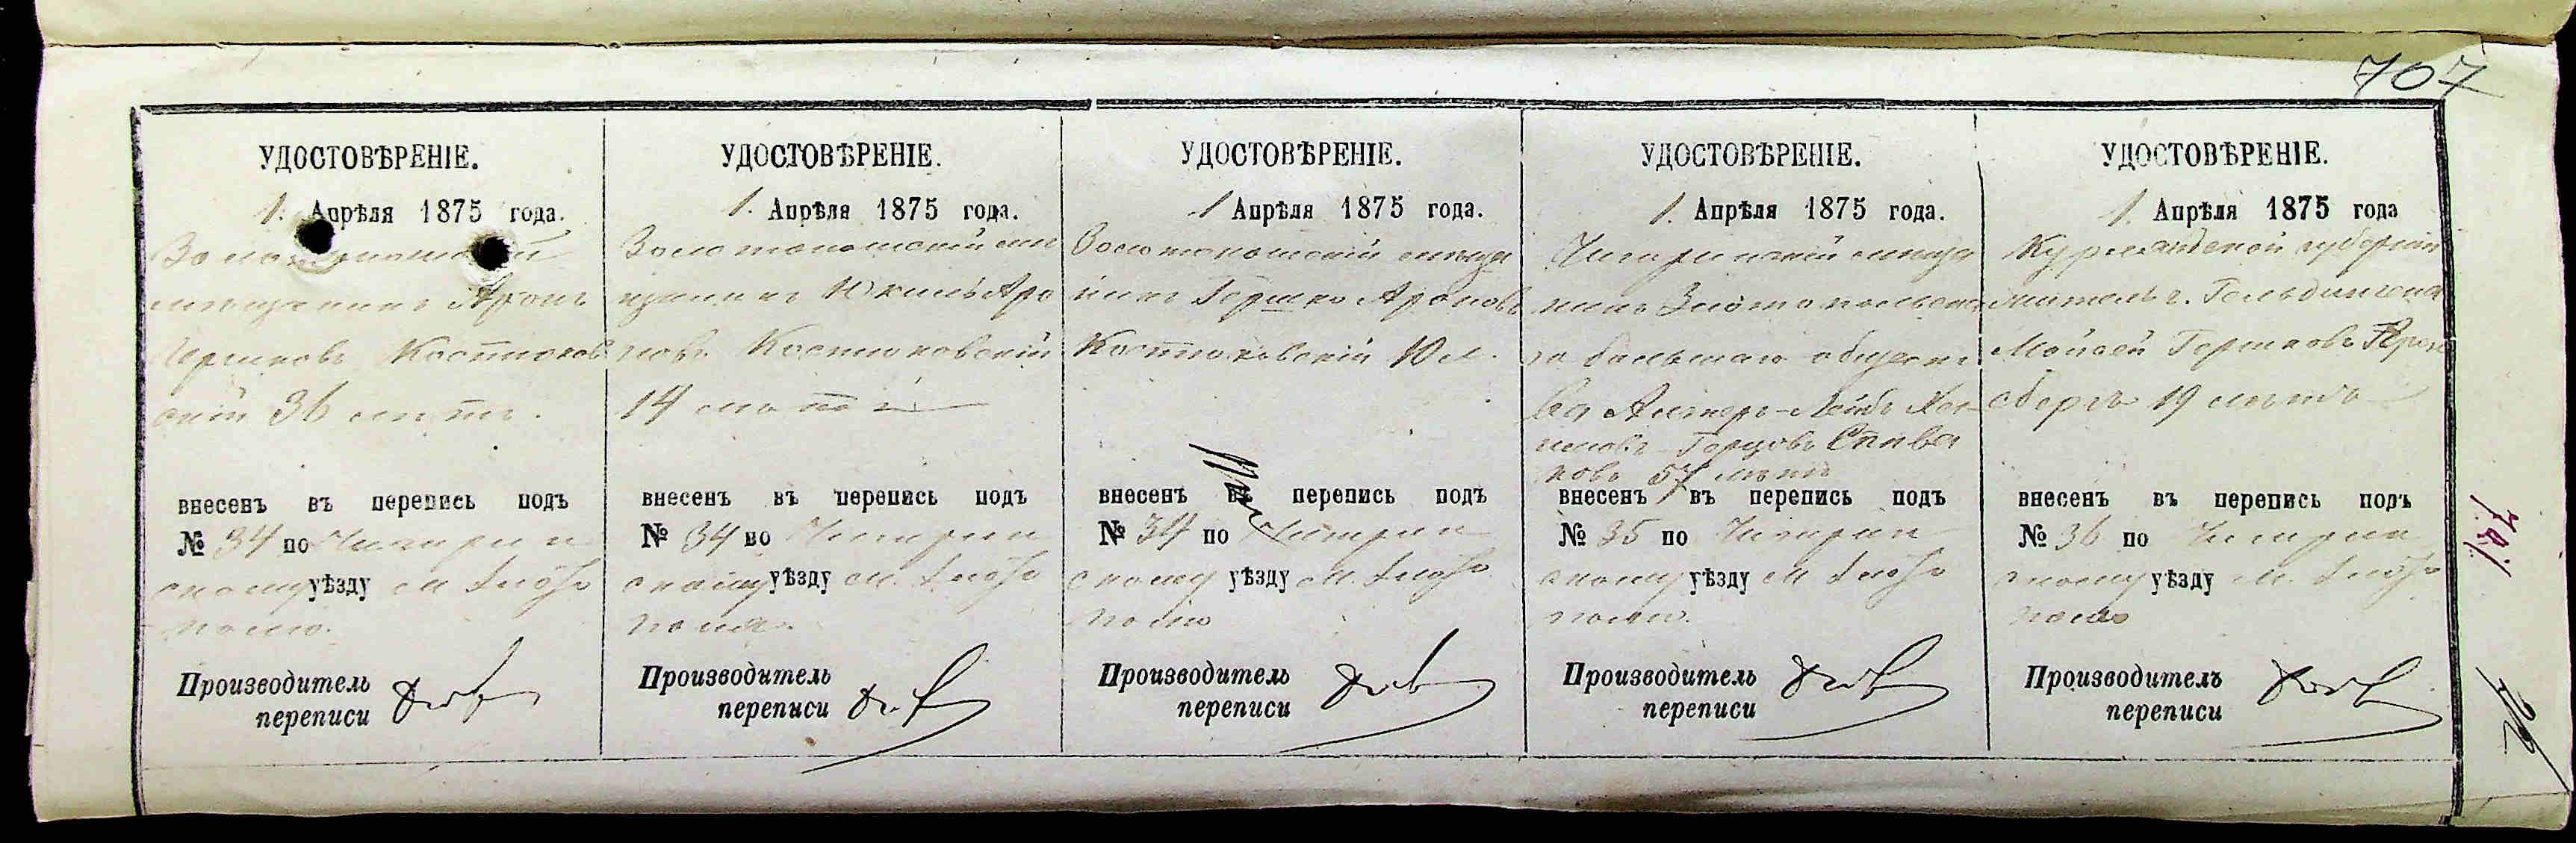 707
УДОСТОВѢРЕНІЕ.
1. Апрѣля 1875 года.
Золотоношскій
мѣщанинъ Аронъ
Гершковъ Костюков
скій 36 лѣтъ.
внесенъ въ перепись подъ
№ 34 по Чигирин
скому уѣзду м. Злато
полю.
Производитель
переписи
УДОСТОВѢРЕНІЕ.
1. Апрѣля 1875 года.
Золотоношскій мѣ
щанинъ Аро
новъ Костюковскій
14 лѣтъ
внесенъ въ перепись подъ
№ 34 по Чигирин
скому уѣзду м. Злато
полю.
Производитель
переписи
УДОСТОВѢРЕНІЕ.
1 Апрѣля 1875 года.
Золотоношскій мѣща
нинъ Гершко Ароновъ
Костюковскій 10 л.
внесенъ въ перепись подъ
№ 34 по Чигирин
скому уѣзду м. Злато
полю
Производитель
переписи
УДОСТОВѢРЕНІЕ.
1. Апрѣля 1875 года.
Чигиринскій мѣща
нинъ Златопольска
го большаго общест
ва Лейбъ
Спива
ковъ 57 лѣтъ
внесенъ въ перепись подъ
№ 35 по Чигирин
скому уѣзду м Злато
полю.
Производитель
переписи
УДОСТОВѢРЕНІЕ.
1. Апрѣля 1875 года
Курляндской губерніи
житель г. Гольдингена
Мойсей Гершковъ
сбергъ 19 лѣтъ
внесенъ въ перепись подъ
№ 36 по Чигирин
скому уѣзду м. Злато
полю
Производитель
переписи